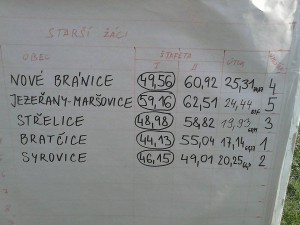 STARŠÍ ŽÁCI
OBEC ŠTAFETA ÚTOK
I II
NOVÉ BRÁNICE 49,56 60,92 25,31 4
JEZEŘANY-MARŠOVICE 59,16 62,51 24,44 5
STŘELICE 48,98 58,82 19,93 3
BRATČICE 44,13 55,04 17,14 1
SYROVICE 46,15 49,01 20,25 2